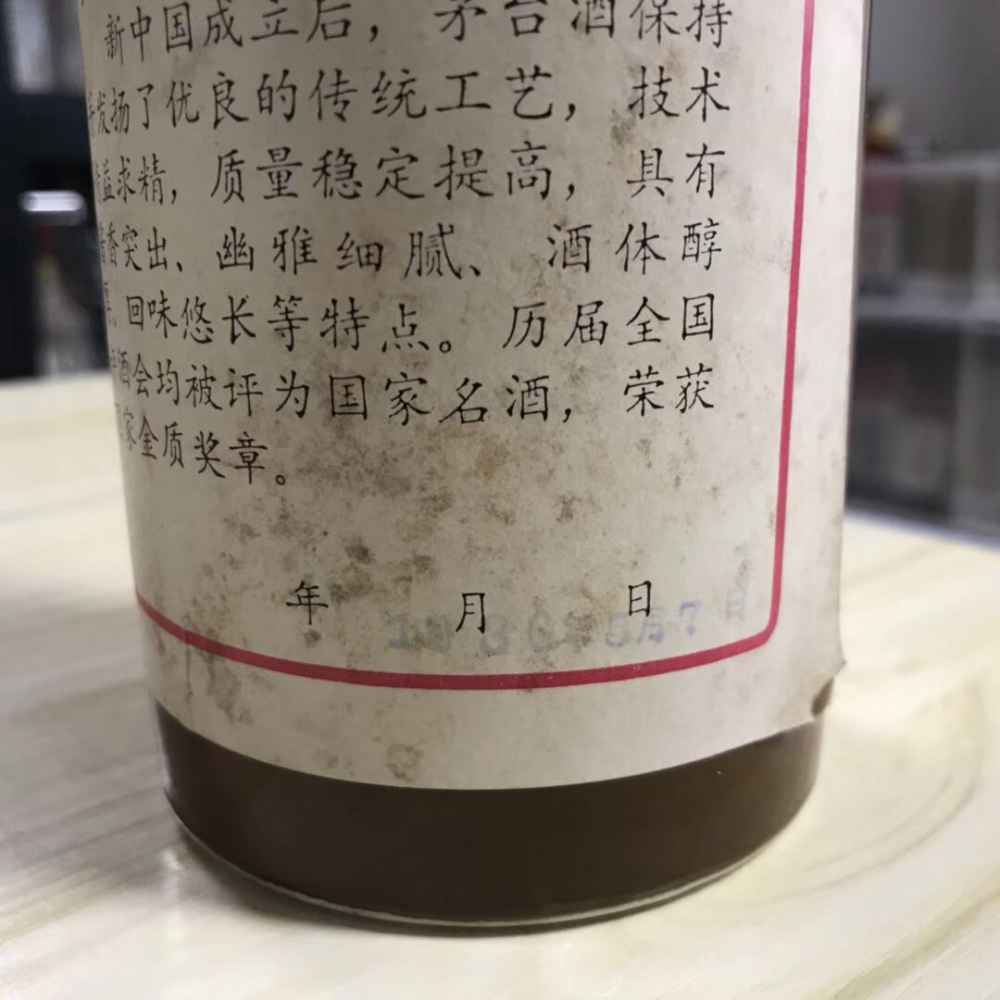 新中国成立后，茅台酒保持
发扬了优良的传统工艺，技术
益求精，质量稳定提高，具有
香突出、幽雅细腻、酒体醇
回味悠长等特点。历届全国
酒会均被评为国家名酒，荣获
家金质奖章。
年 月 日